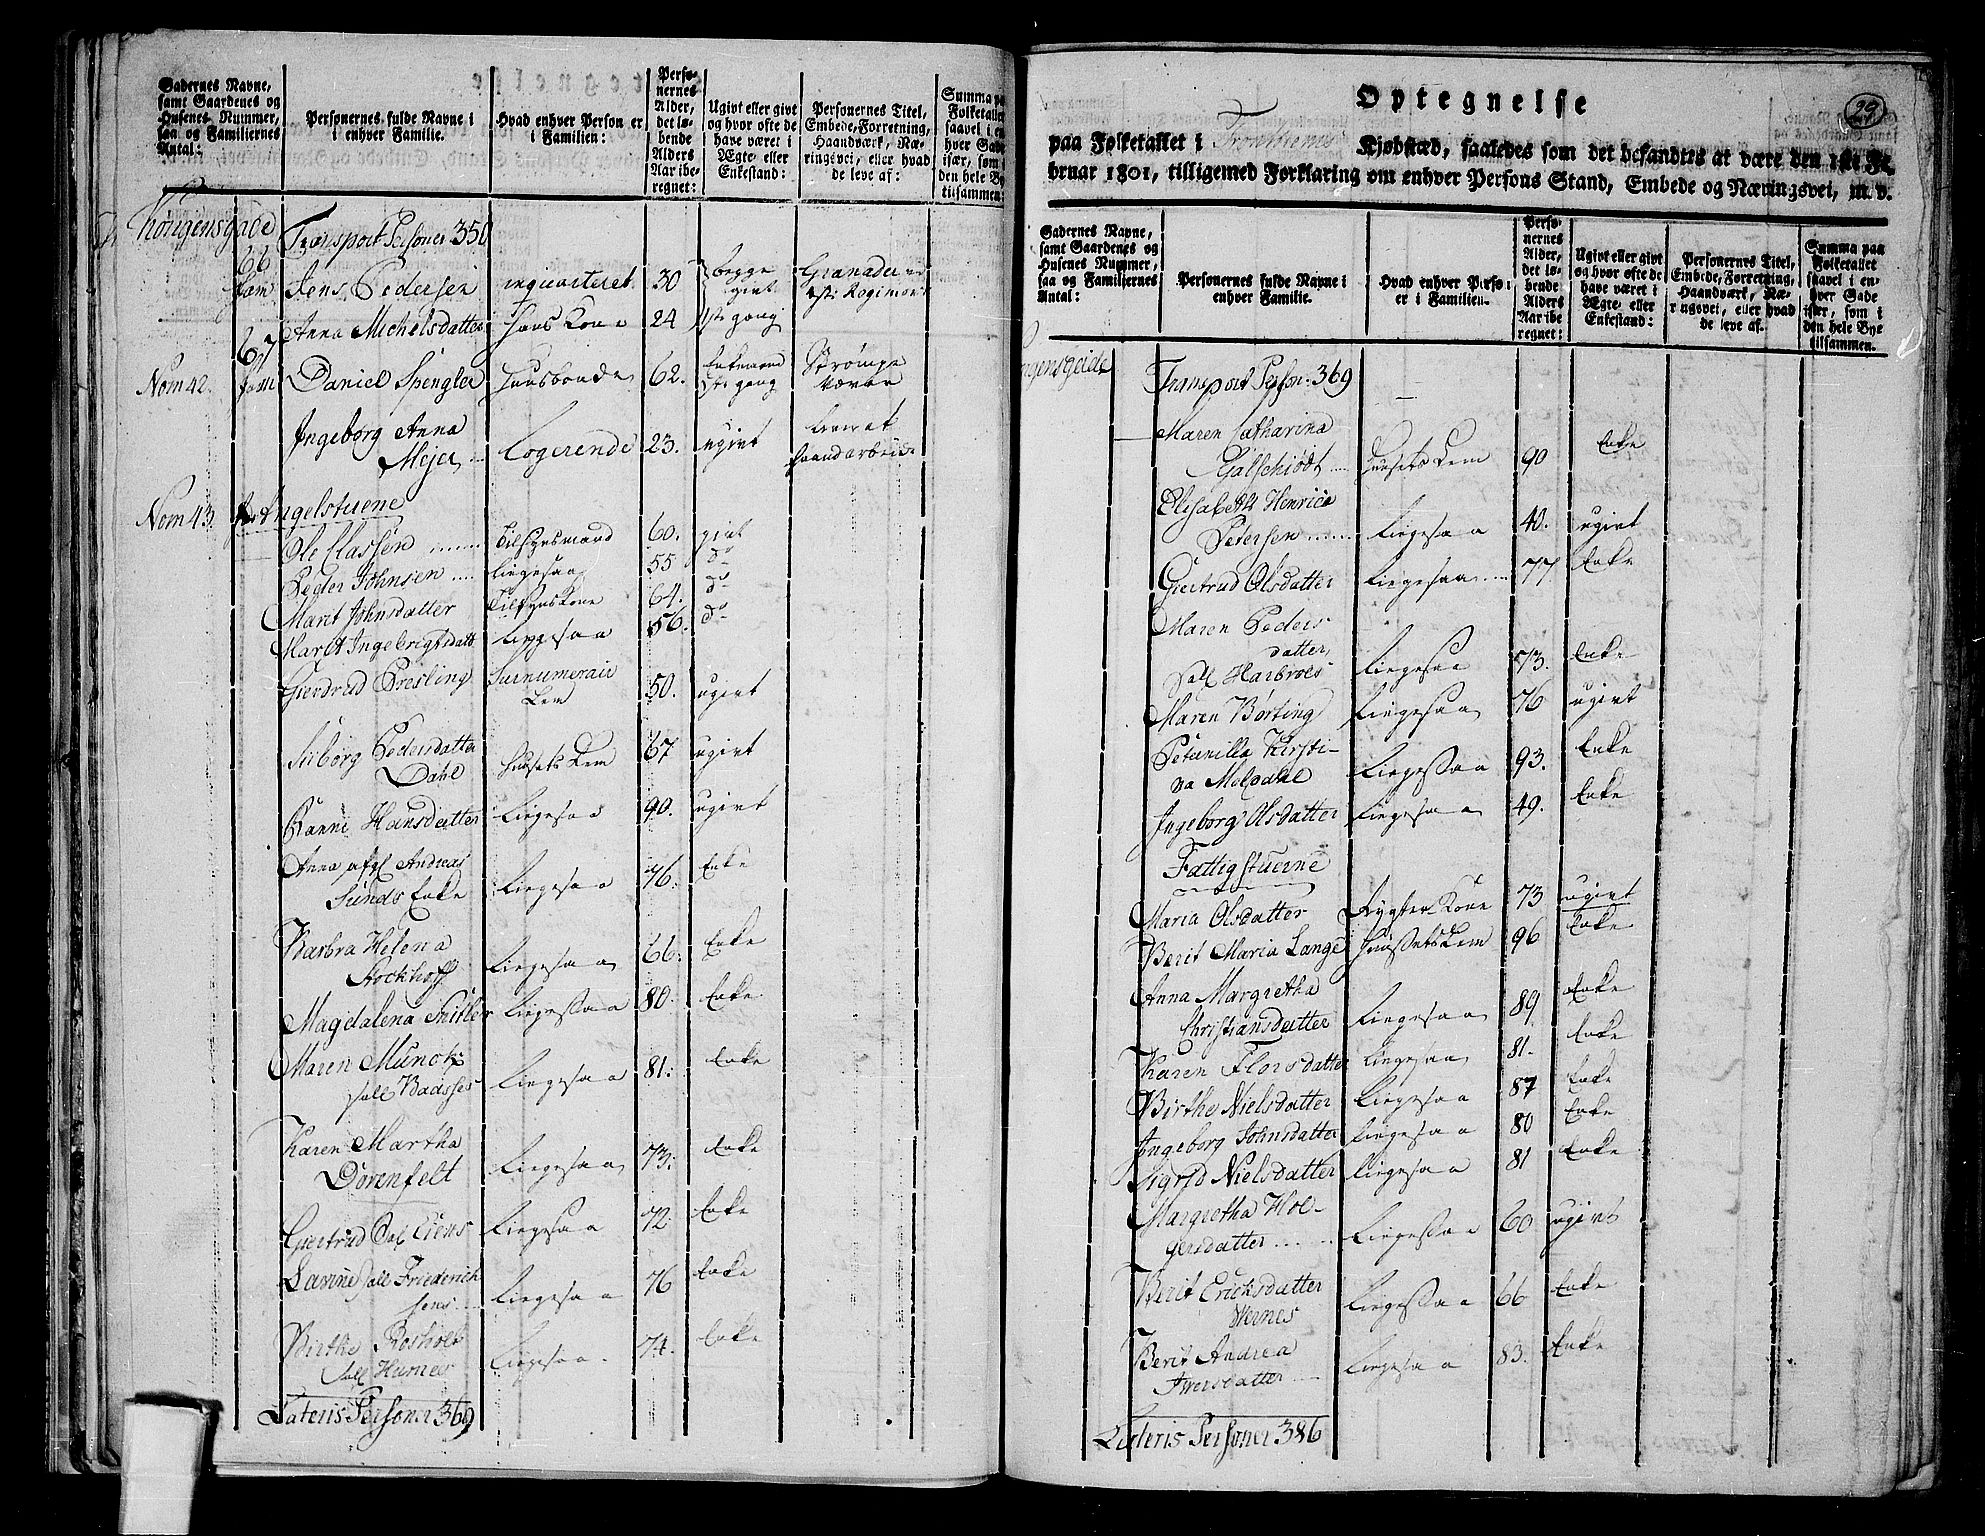 Gadernes Navne, samt Gaardenes og Husenes Nummer, saa og Familiernes Antal:
Personernes fulde Navne i enhver Familie.
Hvad enhver Person er i Familien:
Personernes Alder, det løbende Alders Aar iberegnet:
Ugivt eller givt og hvor ofte de have været i Ægte- eller Enkestand:
Personernes Titel, Embede, Forretning, Haandværk, Næringsvei, eller hvad de leve af:
Summa paa Folketallet saavel i enhver Gade især, som i den hele Bye tilsammen.
Kongensgade Transport Personer 350
66 fam Jens Pedersen inqvarteret 30 begge givt
Anna Michelsdatter Hans Kone 24 1ste gang
Nom 42. 67 fam Daniel Spengler Huusbonde 62. Enkemand 1ste gang Strømpe Væver
Ingeborg Anna
Mejer Logerende 23. ugivt haandarbeide
Nom 43. Angelstuene
Ole Classen Tilsynsmand 60. givt
Peder Johnsen ligesaa 55 do
Marit Johnsdatter Tilsyns Kone 64. do
Marit Ingebrigtsdatt ligesaa 56. do
Gierdrud Bresling Surnumerair Lem 50. ugivt
Siiborg Pedersdatter
Dahl Husets Lem 67 ugivt
Hansdatter Ligesaa 90. ugivt
Anna afgl Andreas
Sunds Enke Ligesaa 76. Enke
Barbra Helena
Stockhoff Ligesaa 66: Enke
Magdalena Ligesaa 80. Enke
Maren Munch
sall Baasses Ligesaa 81: Enke
Karen Martha
Dorenfelt Ligesaa 73: Enke
Giertrud Sal Eiens Ligesaa 72: Enke
Lavine sall Friederich
sens Ligesaa 76 Enke
Birthe
sall Ligesaa 74. Enke
Lateris Personer 369
29
Optegnelse
paa Folketallet i Trondhiems Kjøbstæd, saaledes som det befandtes at være den 1ste Fe-
bruar 1801, tilligemed Forklaring om enhver Persons Stand, Embede og Næringsvei, m. v.
Gadernes Navne, samt Gaardenes og Husenes Nummer, saa og Familiernes Antal:
Personernes fulde Navne i enhver Familie.
Hvad enhver Person er i Familien.
Personernes Alder, det løbende Alders Aar iberegnet:
Ugivt eller givt og hvor ofte de have været i Ægte- eller Enkestand:
Personernes Titel, Embede, Forretning, Haandværk, Næringsvei, eller hvad de leve af.
Summa paa Folketallet saavel i enhver Gade især, som i den hele Bye tilsammen.
ngensgade Transport Person: 369
Maren Catharina
Gälschiødt Husets Lem 90 Enke
Elisabeth Henrica
Petersen Ligesaa 40. ugivt
Giertrud Olsdatter Ligesaa 77 Enke
Maren Peders
datter,
sall Harbroes Ligesaa 73. Enke
Maren Børting Ligesaa 76 ugivt
Petanilla Kirsti-
na Moldahl Ligesaa 93. Enke
Ingeborg Olsdatter Ligesaa 49. Enke
Fattigstuerne
Maria Olsdatter Rygter Kone 73 ugivt
Berit Maria Lange Huusets Lem 96 Enke
Anna Margretha
Christiansdatter Ligesaa 89 Enke
Karen Florsdatter Ligesaa 81. Enke
Birthe Nielsdatter Ligesaa 87 Enke
Ingeborg Johnsdatter Ligesaa 80 Enke
Sigrid Nielsdatter Ligesaa 81 Enke
Margretha Hol-
gersdatter Ligesaa 60 ugivt
Berit Ericksdatter
Wernes Ligesaa 66 Enke
Berit Andrea
Iversdatter Ligesaa 83. Enke
Lateris Personer 386